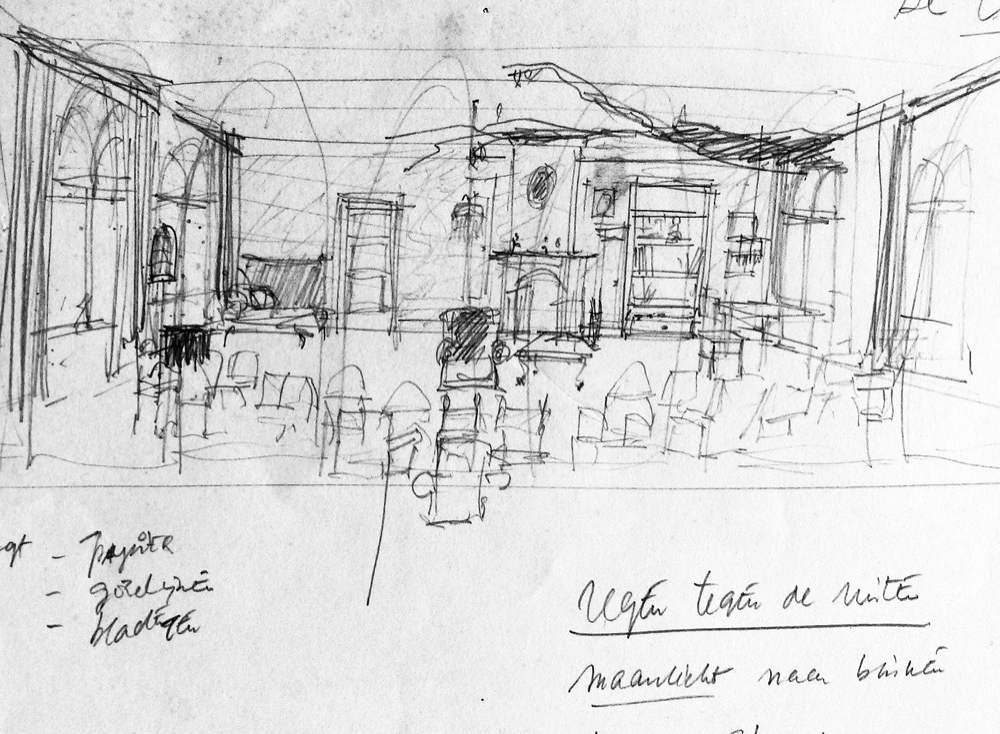 De
- papier
- gordijnen
- bladeren
Regen tegen de ruiten
maanlicht naar binnen